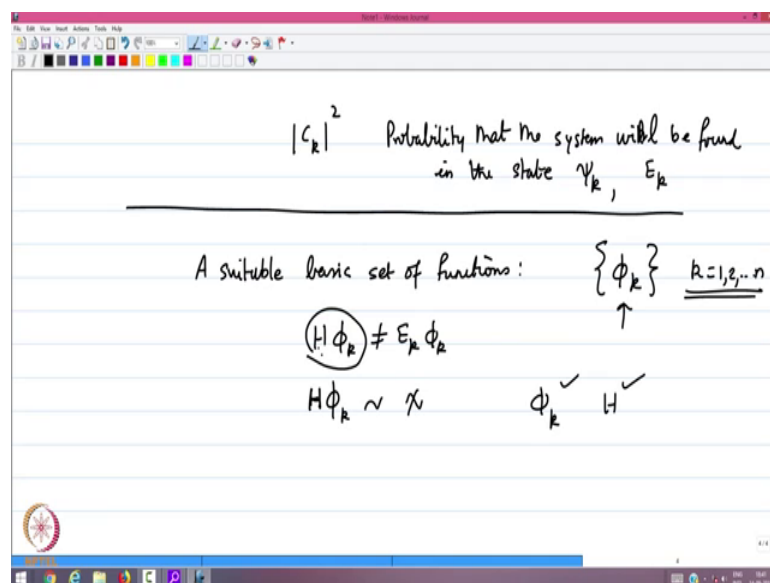 Note1 - Windows Journal
File Edit View Insert Actions Tools Help
|C_k|² Probability that the system will be found
in the state Ψ_k, E_k
A suitable basic set of functions: {ϕ_k} k=1,2,..n
↑
Hϕ_k ≠ E_k ϕ_k
Hϕ_k ~ χ ϕ_k ✓ H ✓